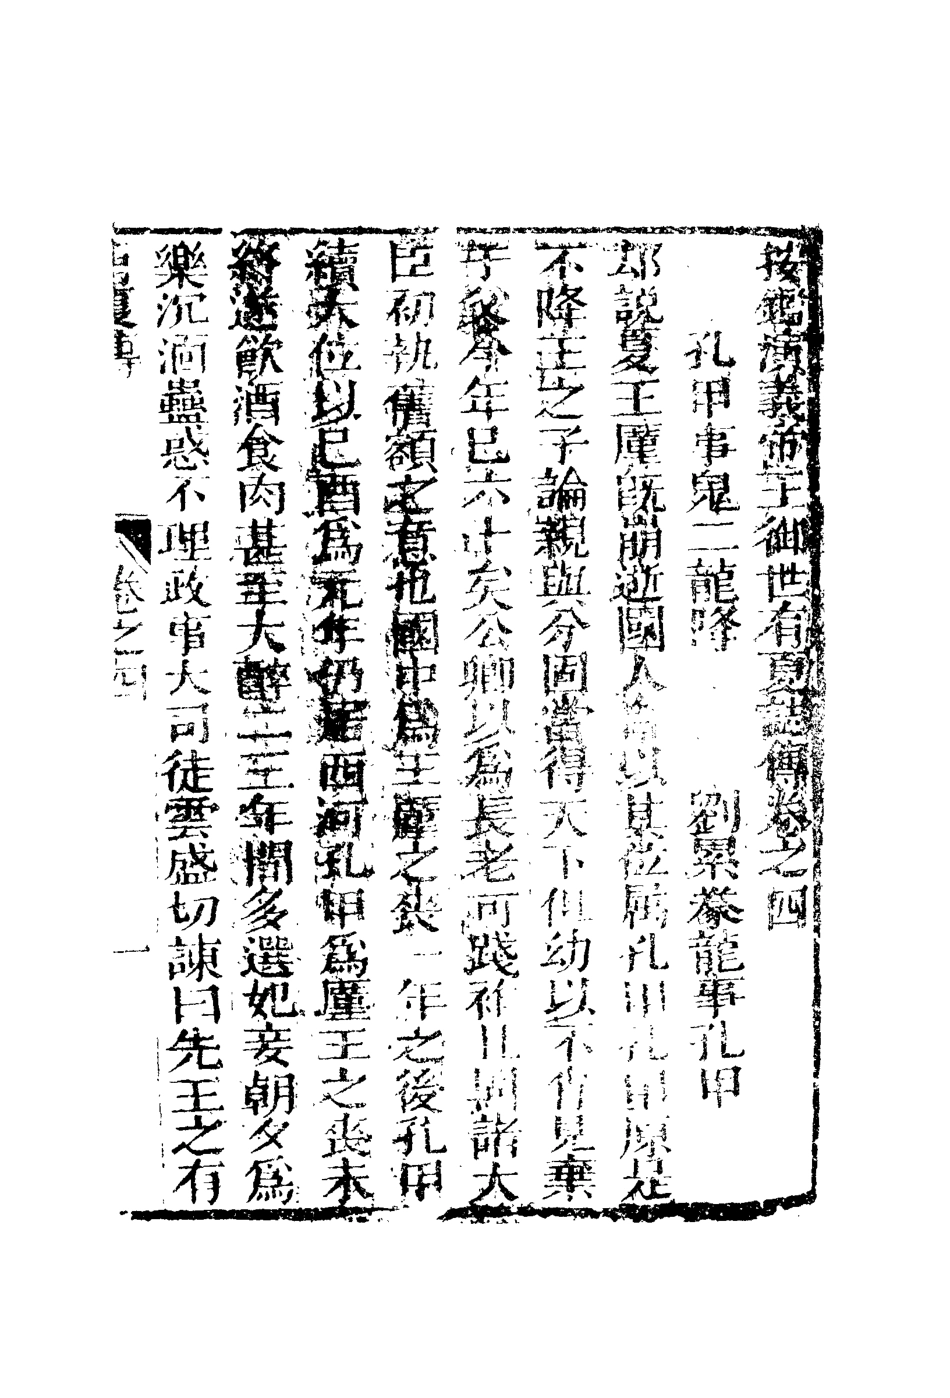 按鑑演義帝王御世有夏誌傳卷之四
孔甲事鬼二龍降　劉累豢龍事孔甲
却說夏王廑既崩逝國人會以其位属孔甲孔甲原是
不降王之子論親與分固當得天下但幼以不肖見棄
于父今年已六十矣公卿以爲長老可踐祚且圖諸大
臣初執舊額之意也國中爲王廑之喪一年之後孔甲
續大位以已酉爲元年仍居西河孔甲爲廑王之喪未
終遂飲酒食肉甚至大醉二三年間多選妃妾朝夕爲
樂沉湎蠱惑不理政事大司徒雲盛切諫曰先王之有
夏傳
卷之四
一